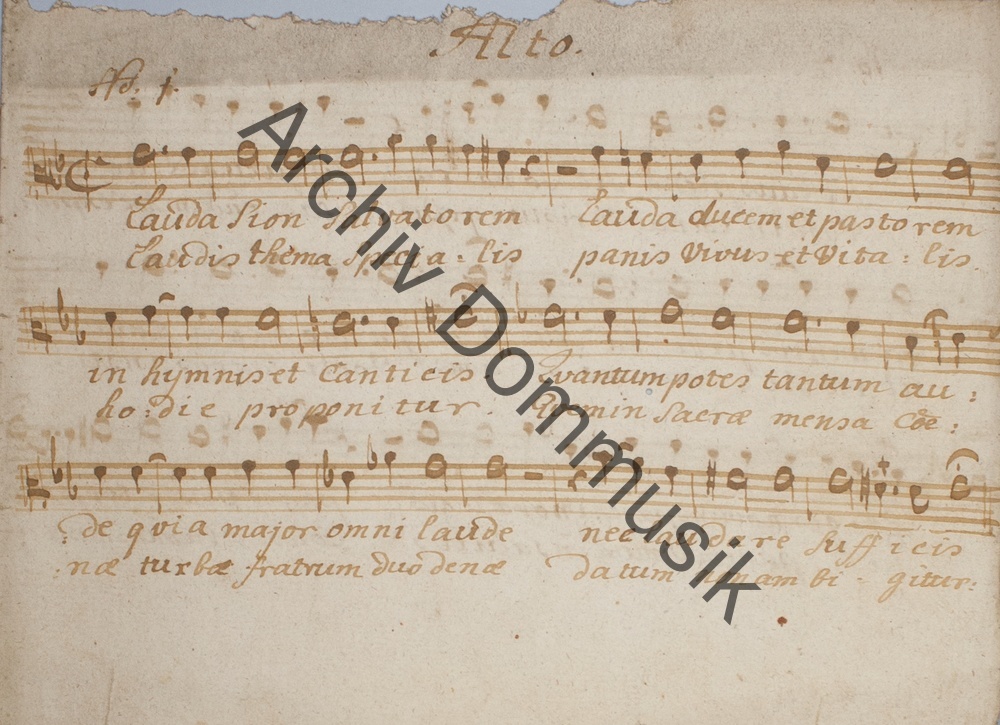 Alto.
No. 1.
Lauda Sion Salvatorem Lauda ducem et pastorem
Laudis thema specia : lis panis Vivus et Vita : lis
in hijmnis et Canticis. Qvantum potes tantum au :
ho : die proponitur. Qvem in Sacræ mensa Cœ :
: de qvia major omni laude nec laudare sufficis
: næ turbæ fratrum duodenæ Datum non ambi - gitur.
Archiv Dommusik